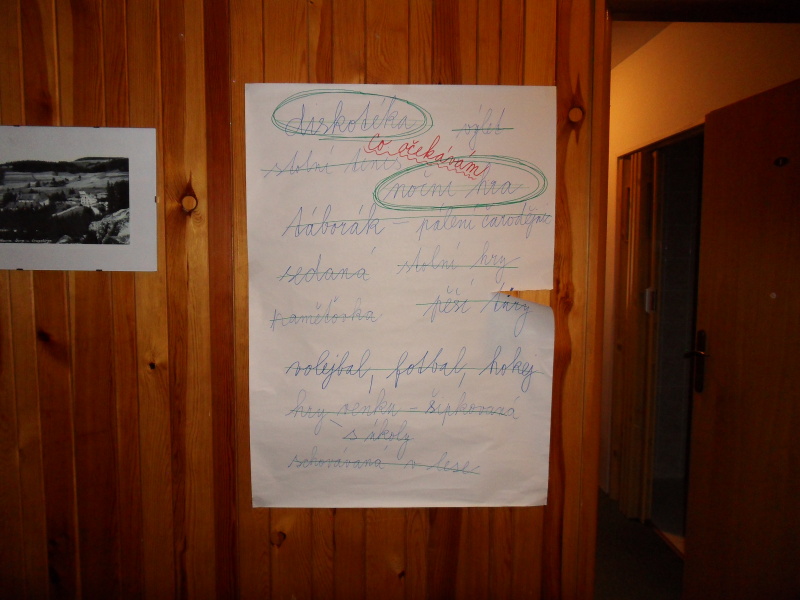 diskotéka výlet
Co očekávám
stolní tenis
noční hra
táborák - pálení čarodějnic
sedaná stolní hry
pěší túry
volejbal, fotbal, hokej
hry venku - šipkovaná
s úkoly
schovávaná v lese